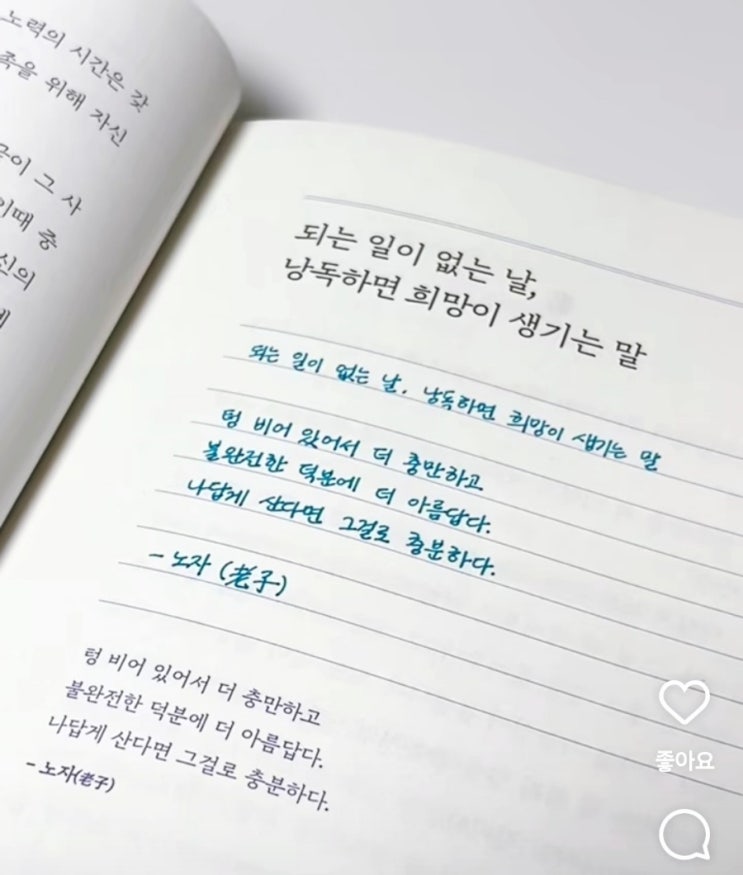 노력의 시간은 갖
족을 위해 자신
그 사
이때 중
신의
되는 일이 없는 날,
낭독하면 희망이 생기는 말
되는 일이 없는 날, 낭독하면 희망이 생기는 말
텅 비어 있어서 더 충만하고
불완전한 덕분에 더 아름답다.
나답게 산다면 그걸로 충분하다.
- 노자 (老子)
텅 비어 있어서 더 충만하고
불완전한 덕분에 더 아름답다.
나답게 산다면 그걸로 충분하다.
- 노자(老子)
좋아요